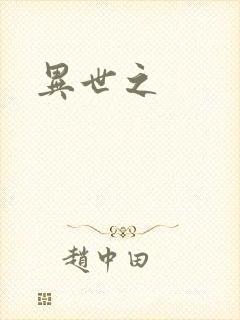 異世之
趙中田